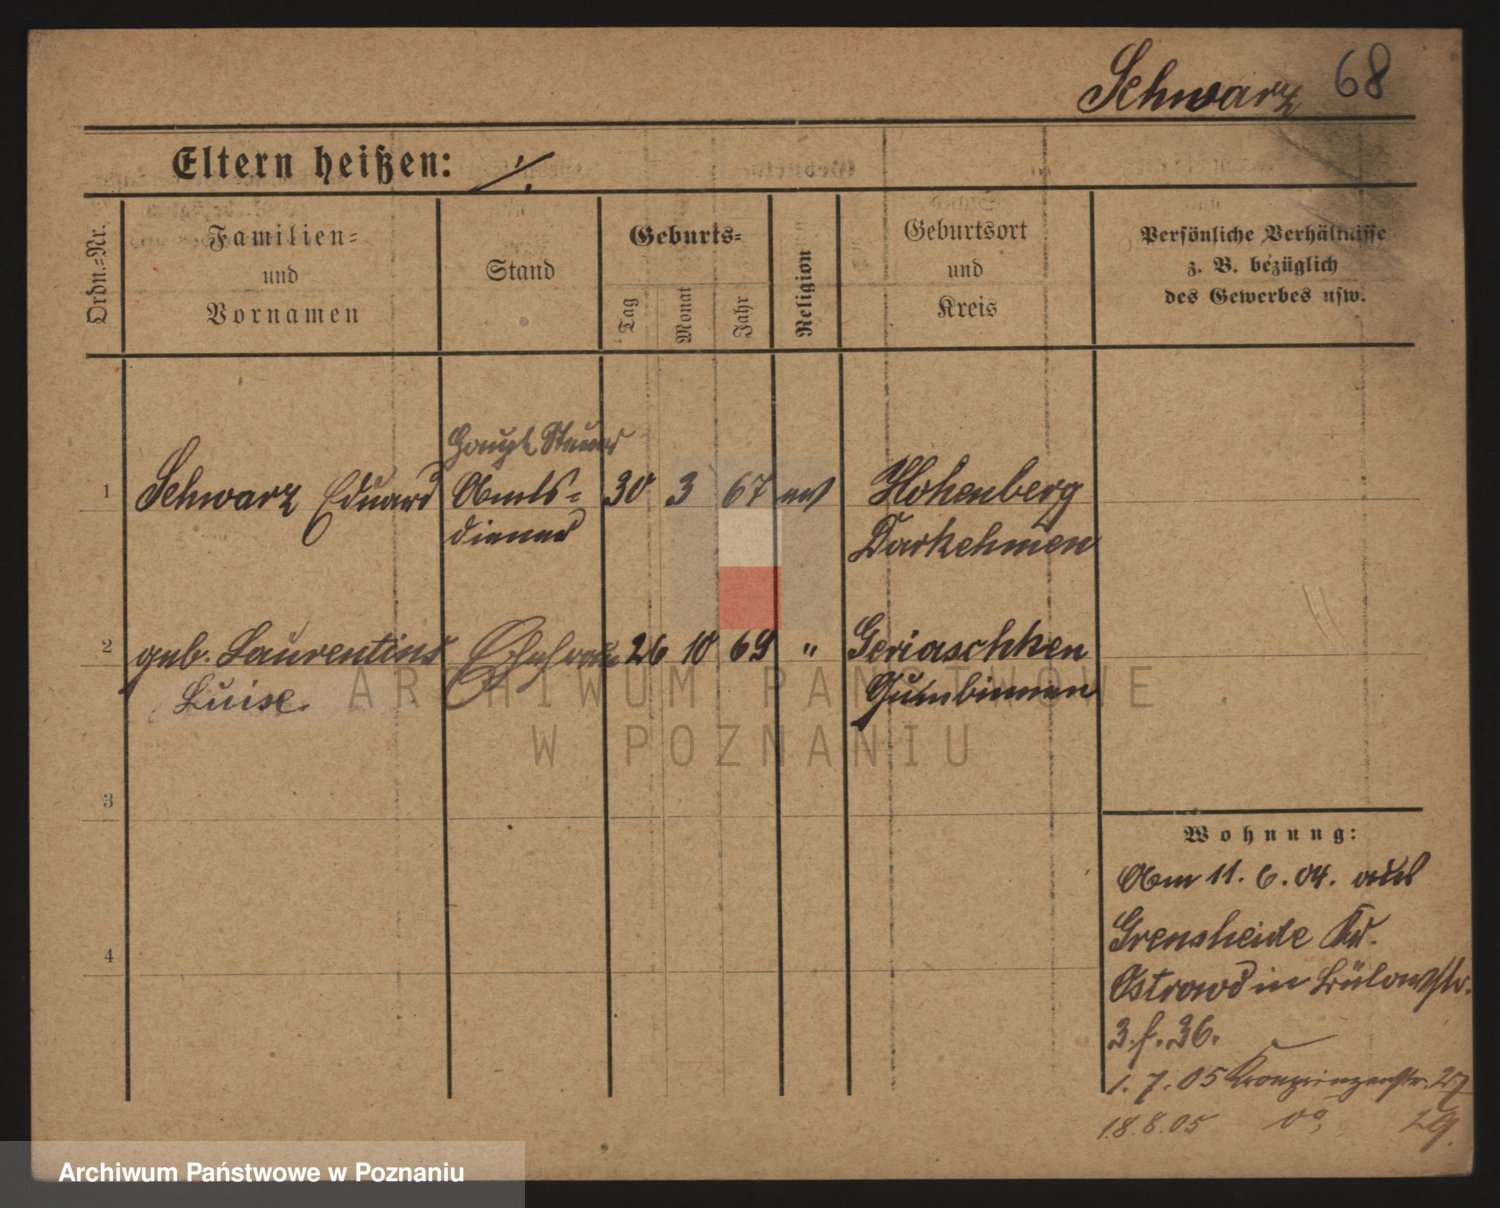 Schwarz 68
Eltern heißen: ./.
Ordn.-Nr.
Familien-
und
Vornamen
Stand
Geburts-
Tag
Monat
Jahr
Religion
Geburtsort
und
Kreis
Persönliche Verhältnisse
z. B. bezüglich
des Gewerbes usw.
Haupt Steuer
1 Schwarz Eduard Amts- 30 3 67 ev Hohenberg
diener Darkehmen
2 geb. Laurentius Ehefrau 26 10 69 " Geriaschken
Luise. Gumbinnen
3
4
Wohnung:
Am 11. 6. 04. aus
Grensheide Kr.
Ostrowo in Bülowstr.
3. f. 36.
1. 7. 05 Kronprinzenstr. 27
18. 8. 05 do 29.
ARCHIWUM PAŃSTWOWE
W POZNANIU
Archiwum Państwowe w Poznaniu